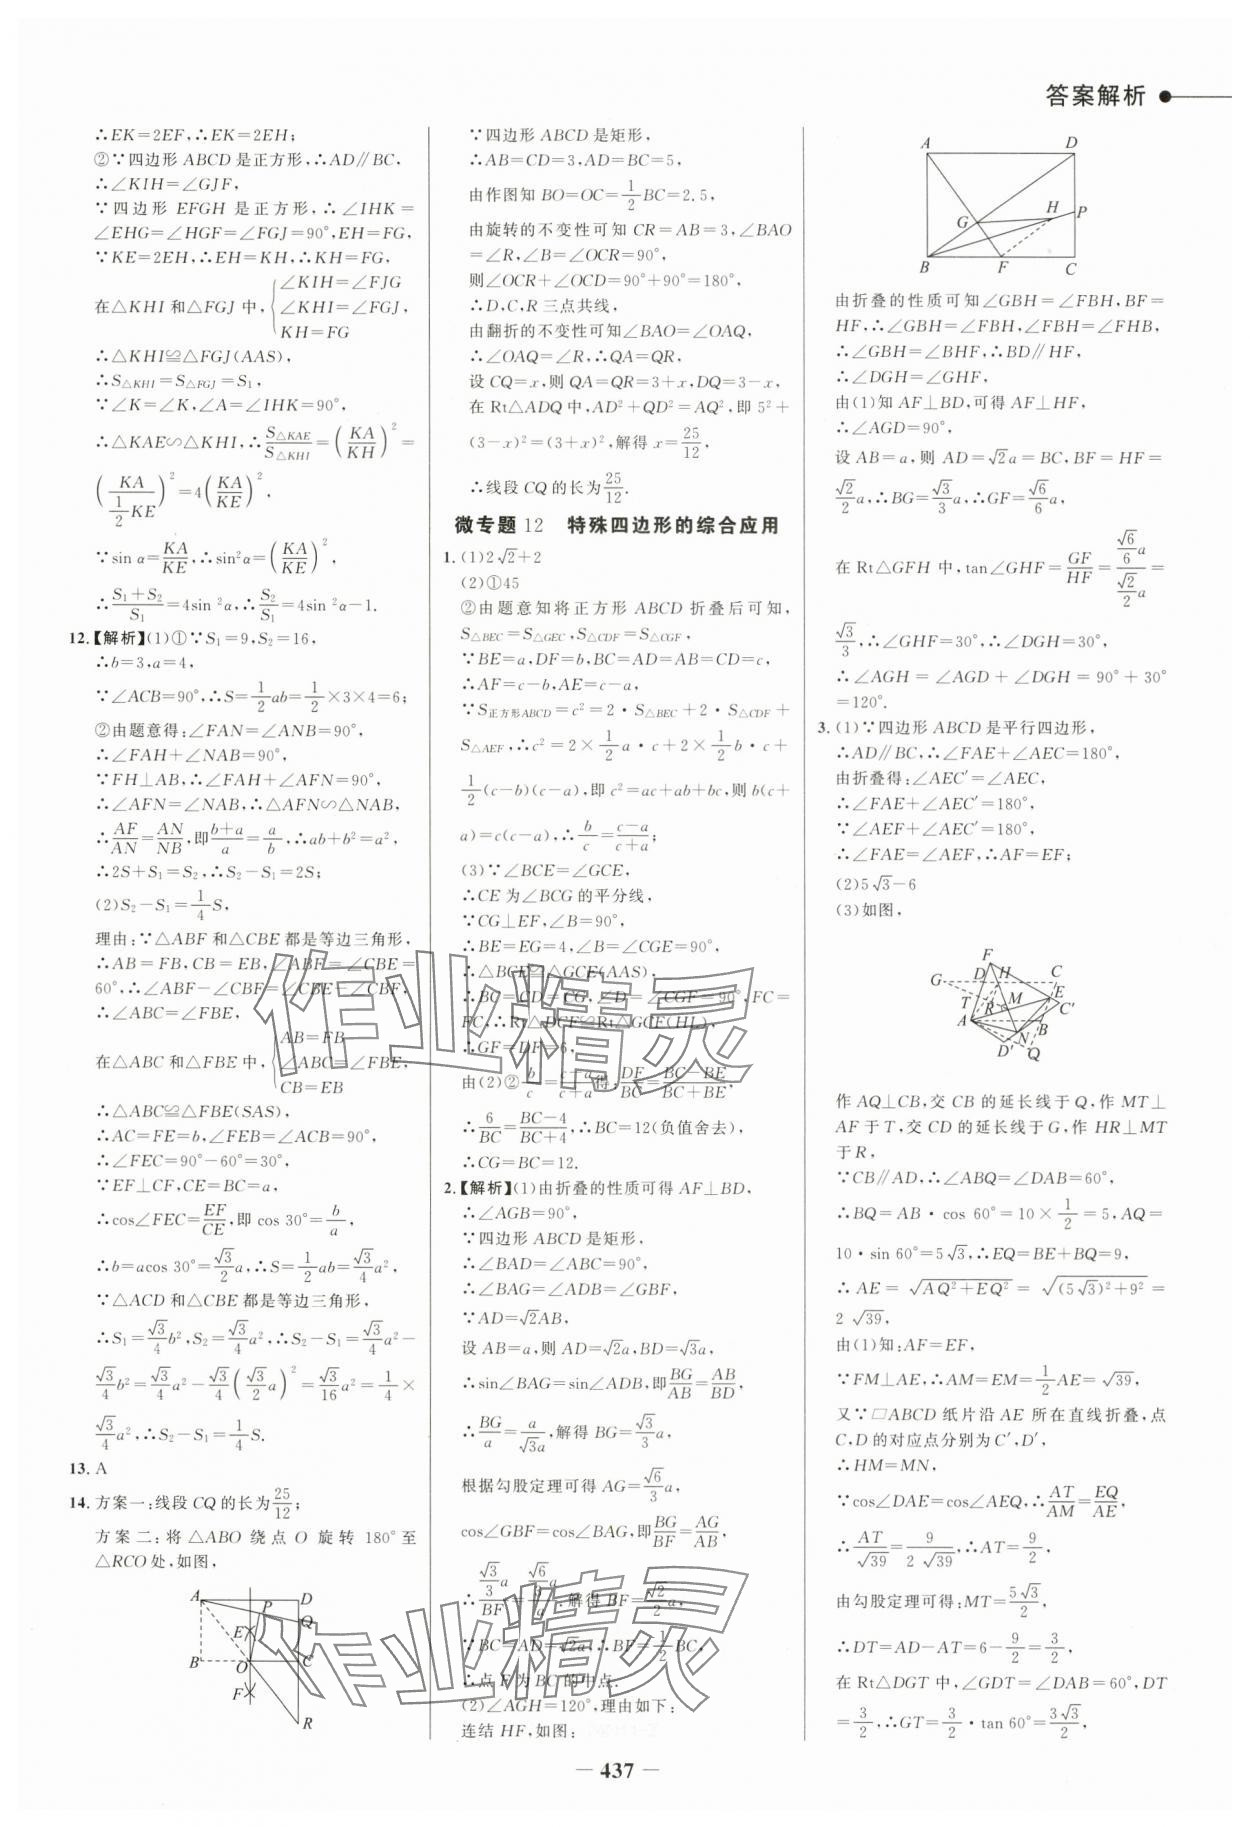 答案解析
∴EK=2EF,∴EK=2EH;
②∵四边形 ABCD 是正方形,∴AD∥BC,
∴∠KIH=∠GJF,
∵四边形 EFGH 是正方形,∴∠IHK=
∠EHG=∠HGF=∠FGJ=90°,EH=FG,
∵KE=2EH,∴EH=KH,∴KH=FG,
在△KHI 和△FGJ 中,{∠KIH=∠FJG
∠KHI=∠FGJ,
KH=FG
∴△KHI≌△FGJ(AAS),
∴S△KHI=S△FGJ=S₁,
∵∠K=∠K,∠A=∠IHK=90°,
∴△KAE∽△KHI,∴S△KAE/S△KHI=(KA/KH)²=
(KA/(1/2 KE))²=4(KA/KE)²,
∵sin α=KA/KE,∴sin²α=(KA/KE)²,
∴(S₁+S₂)/S₁=4sin²α,∴S₂/S₁=4sin²α-1.
12.【解析】(1)①∵S₁=9,S₂=16,
∴b=3,a=4,
∵∠ACB=90°,∴S=1/2ab=1/2×3×4=6;
②由题意得:∠FAN=∠ANB=90°,
∴∠FAH+∠NAB=90°,
∵FH⊥AB,∴∠FAH+∠AFN=90°,
∴∠AFN=∠NAB,∴△AFN∽△NAB,
∴AF/AN=AN/NB,即(b+a)/a=a/b,∴ab+b²=a²,
∴2S+S₁=S₂,∴S₂-S₁=2S;
(2)S₂-S₁=1/4S,
理由:∵△ABF 和△CBE 都是等边三角形,
∴AB=FB,CB=EB,∠ABF=∠CBE=
60°,∴∠ABF-∠CBF=∠CBE-∠CBF,
∴∠ABC=∠FBE,
在△ABC 和△FBE 中,{AB=FB
∠ABC=∠FBE,
CB=EB
∴△ABC≌△FBE(SAS),
∴AC=FE=b,∠FEB=∠ACB=90°,
∴∠FEC=90°-60°=30°,
∵EF⊥CF,CE=BC=a,
∴cos∠FEC=EF/CE,即 cos 30°=b/a,
∴b=acos 30°=√3/2a,∴S=1/2ab=√3/4a²,
∵△ACD 和△CBE 都是等边三角形,
∴S₁=√3/4b²,S₂=√3/4a²,∴S₂-S₁=√3/4a²-
√3/4b²=√3/4a²-√3/4(√3/2a)²=√3/16a²=1/4×
√3/4a²,∴S₂-S₁=1/4S.
13. A
14. 方案一:线段 CQ 的长为25/12;
方案二:将△ABO 绕点 O 旋转 180°至
△RCO处,如图,
A D P Q E B O C F R
∵四边形 ABCD 是矩形,
∴AB=CD=3,AD=BC=5,
由作图知 BO=OC=1/2BC=2.5,
由旋转的不变性可知 CR=AB=3,∠BAO
=∠R,∠B=∠OCR=90°,
则∠OCR+∠OCD=90°+90°=180°,
∴D,C,R 三点共线,
由翻折的不变性可知∠BAO=∠OAQ,
∴∠OAQ=∠R,∴QA=QR,
设 CQ=x,则 QA=QR=3+x,DQ=3-x,
在 Rt△ADQ 中,AD²+QD²=AQ²,即 5²+
(3-x)²=(3+x)²,解得 x=25/12,
∴线段 CQ 的长为25/12.
微专题 12 特殊四边形的综合应用
1. (1)2√2+2
(2)①45
②由题意知将正方形 ABCD 折叠后可知,
S△BEC=S△GEC,S△CDF=S△CGF,
∵BE=a,DF=b,BC=AD=AB=CD=c,
∴AF=c-b,AE=c-a,
∵S正方形ABCD=c²=2·S△BEC+2·S△CDF+
S△AEF,∴c²=2×1/2a·c+2×1/2b·c+
1/2(c-b)(c-a),即 c²=ac+ab+bc,则 b(c+
a)=c(c-a),∴b/c=(c-a)/(c+a);
(3)∵∠BCE=∠GCE,
∴CE 为∠BCG 的平分线,
∵CG⊥EF,∠B=90°,
∴BE=EG=4,∠B=∠CGE=90°,
∴△BCE≌△GCE(AAS),
∴BC=CD=CG,∠D=∠CGF=90°,FC=
FC,∴Rt△DCF≌Rt△GCF(HL),
∴GF=DF=6,
由(2)②b/c=(c-a)/(c+a)得,DF/BC=(BC-BE)/(BC+BE),
∴6/BC=(BC-4)/(BC+4),∴BC=12(负值舍去),
∴CG=BC=12.
2.【解析】(1)由折叠的性质可得 AF⊥BD,
∴∠AGB=90°,
∵四边形 ABCD 是矩形,
∴∠BAD=∠ABC=90°,
∴∠BAG=∠ADB=∠GBF,
∵AD=√2AB,
设 AB=a,则 AD=√2a,BD=√3a,
∴sin∠BAG=sin∠ADB,即BG/AB=AB/BD,
∴BG/a=a/(√3a),解得 BG=√3/3a,
根据勾股定理可得 AG=√6/3a,
cos∠GBF=cos∠BAG,即BG/BF=AG/AB,
∴(√3/3a)/BF=(√6/3a)/a,解得 BF=√2/2a,
∵BC=AD=√2a,∴BF=1/2BC,
∴点 F 为 BC 的中点.
(2)∠AGH=120°,理由如下:
连结 HF,如图:
A D G H P B F C
由折叠的性质可知∠GBH=∠FBH,BF=
HF,∴∠GBH=∠FBH,∠FBH=∠FHB,
∴∠GBH=∠BHF,∴BD∥HF,
∴∠DGH=∠GHF,
由(1)知 AF⊥BD,可得 AF⊥HF,
∴∠AGD=90°,
设 AB=a,则 AD=√2a=BC,BF=HF=
√2/2a,∴BG=√3/3a,∴GF=√6/6a,
在 Rt△GFH 中,tan∠GHF=GF/HF=(√6/6a)/(√2/2a)=
√3/3,∴∠GHF=30°,∴∠DGH=30°,
∴∠AGH=∠AGD+∠DGH=90°+30°
=120°.
3. (1)∵四边形 ABCD 是平行四边形,
∴AD∥BC,∴∠FAE+∠AEC=180°,
由折叠得:∠AEC′=∠AEC,
∴∠FAE+∠AEC′=180°,
∵∠AEF+∠AEC′=180°,
∴∠FAE=∠AEF,∴AF=EF;
(2)5√3-6
(3)如图,
F D H C G E T R M C′ A B N D′ Q
作 AQ⊥CB,交 CB 的延长线于 Q,作 MT⊥
AF 于 T,交 CD 的延长线于 G,作 HR⊥MT
于 R,
∵CB∥AD,∴∠ABQ=∠DAB=60°,
∴BQ=AB·cos 60°=10×1/2=5,AQ=
10·sin 60°=5√3,∴EQ=BE+BQ=9,
∴AE=√(AQ²+EQ²)=√((5√3)²+9²)=
2√39,
由(1)知:AF=EF,
∵FM⊥AE,∴AM=EM=1/2AE=√39,
又∵▱ABCD 纸片沿 AE 所在直线折叠,点
C,D 的对应点分别为 C′,D′,
∴HM=MN,
∵cos∠DAE=cos∠AEQ,∴AT/AM=EQ/AE,
∴AT/√39=9/(2√39),∴AT=9/2,
由勾股定理可得:MT=5√3/2,
∴DT=AD-AT=6-9/2=3/2,
在 Rt△DGT 中,∠GDT=∠DAB=60°,DT
=3/2,∴GT=3/2·tan 60°=3√3/2,
— 437 —
作业精灵
作业精灵